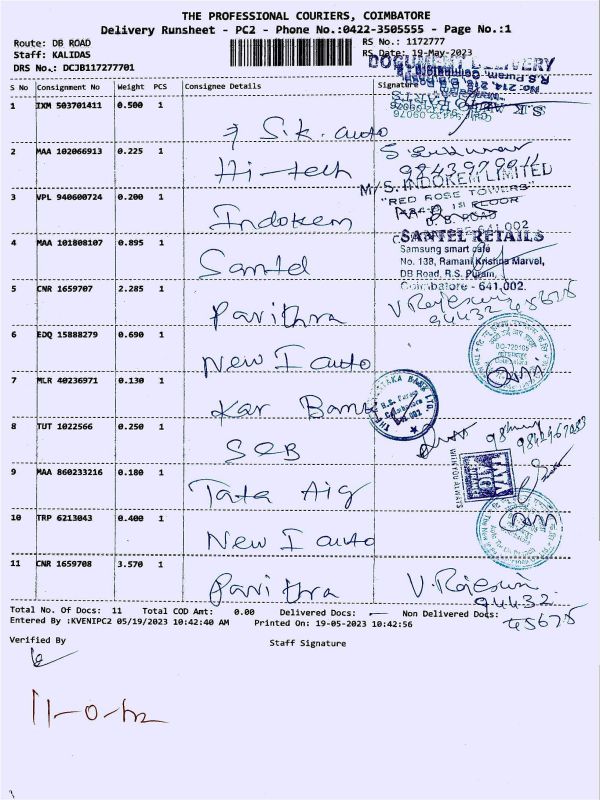 THE PROFESSIONAL COURIERS, COIMBATORE
Delivery Runsheet - PC2 - Phone No.:0422-3505555 - Page No.:1
Route: DB ROAD
RS No.: 1172777
Staff: KALIDAS
RS Date: 19-May-2023
DRS No.: DCJB117277701
DOCUMENT DELIVERY
S No Consignment No Weight PCS Consignee Details Signature
1 IXM 503701411 0.500 1 S.K. auto
2 MAA 102066913 0.225 1 Hi-tech
3 VPL 940600724 0.200 1 Indokem
M/S. INDOKEM LIMITED
"RED ROSE TOWERS"
1st FLOOR
D. B. ROAD
4 MAA 101808107 0.895 1 Santel
SANTEL RETAILS
Samsung smart cafe
No. 138, Ramani Krishna Marvel,
DB Road, R.S. Puram,
Coimbatore - 641 002.
5 CNR 1659707 2.285 1 Pavithra
94432 45675
6 EDQ 15888279 0.690 1 New I auto
7 MLR 40236971 0.130 1 Kar Bank
8 TUT 1022566 0.250 1 SCB
9 MAA 860233216 0.180 1 Tata Aig
TATA AIG
WITH YOU ALWAYS
10 TRP 6213043 0.400 1 New I auto
11 CNR 1659708 3.570 1 Pavithra
94432
45675
Total No. Of Docs: 11 Total COD Amt: 0.00 Delivered Docs: — Non Delivered Docs:
Entered By :KVENIPC2 05/19/2023 10:42:40 AM Printed On: 19-05-2023 10:42:56
Verified By Staff Signature